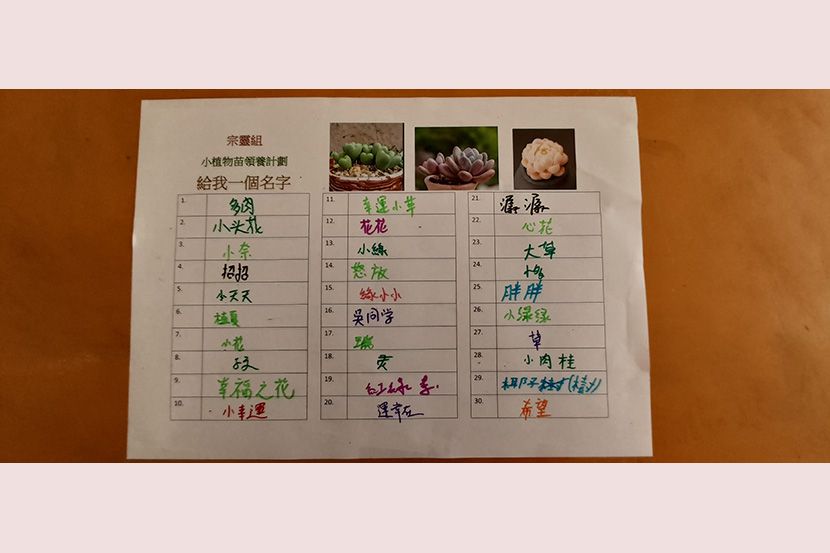 宗靈組
小植物苗領養計劃
給我一個名字
1. 多肉
2. 小头花
3. 小奈
4. 招招
5. 小天天
6.
7. 小花
8.
9. 幸福之花
10. 小幸運
11. 幸運小草
12. 花花
13. 小綠
14. 怒放
15. 綠小小
16. 吳同学
17.
18. 灵
19.
20.
21. 潺潺
22. 心花
23. 大草
24.
25. 胖胖
26. 小绿绿
27. 草
28. 小肉桂
29.
30. 希望